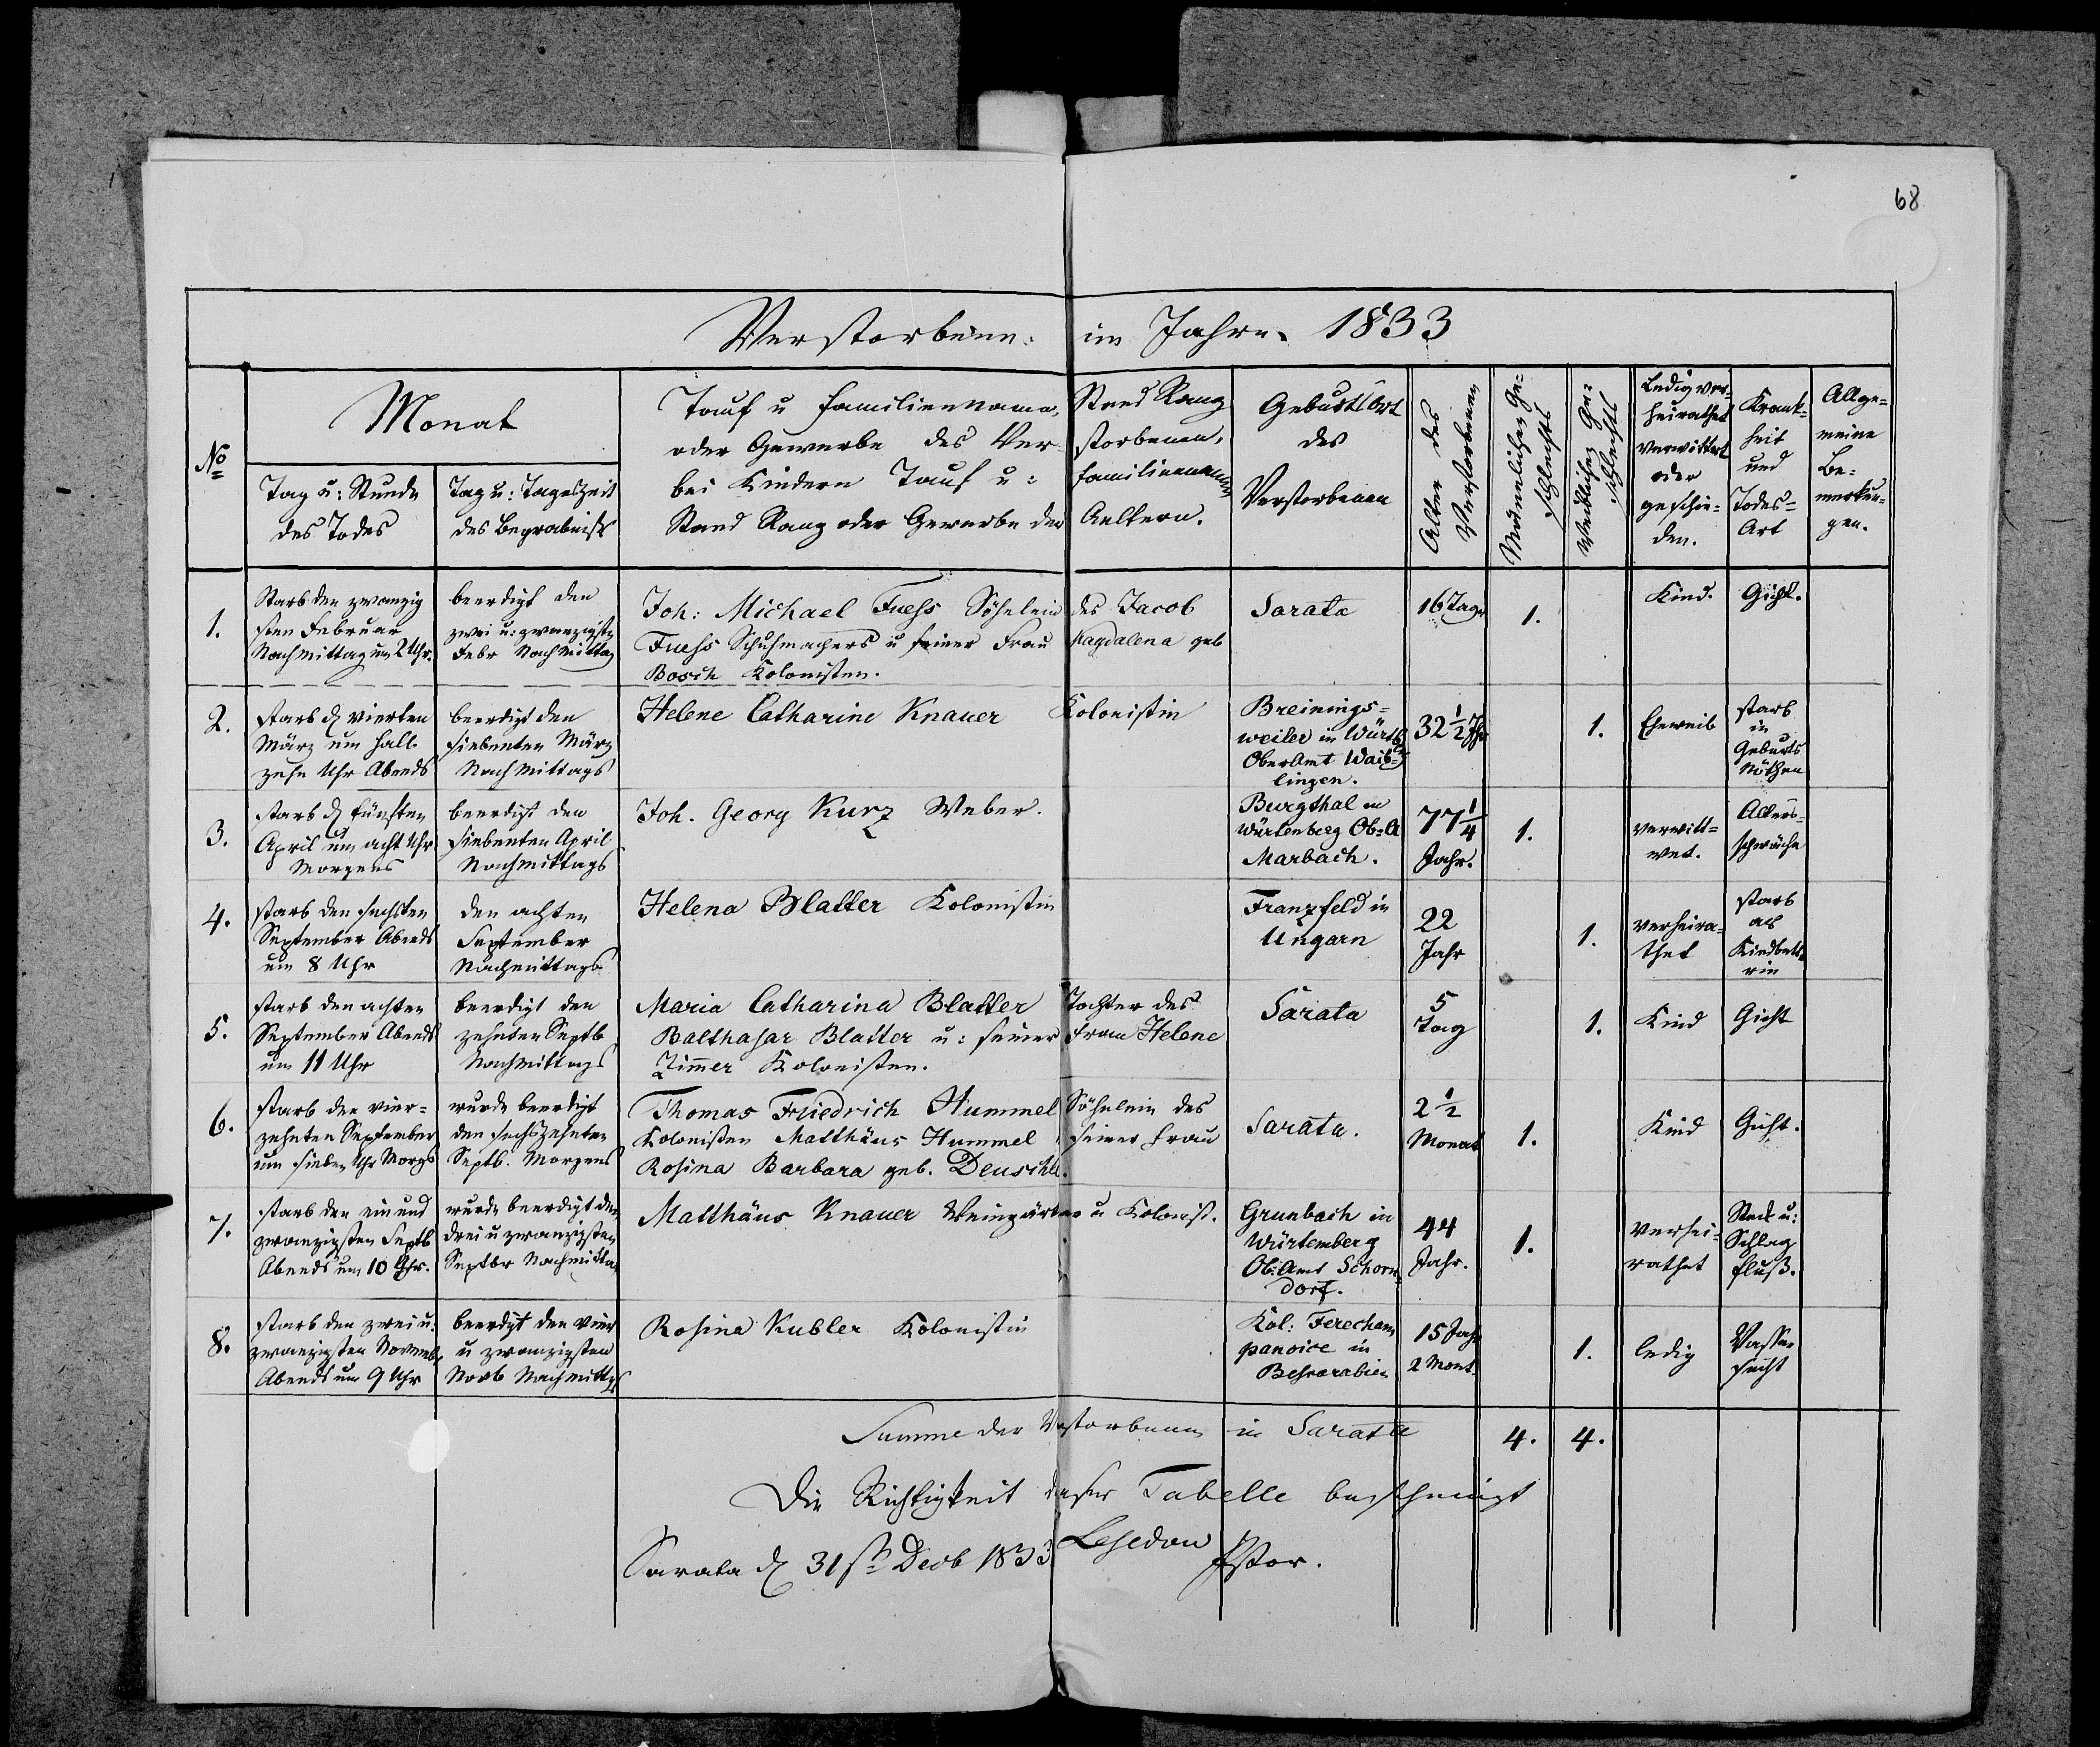 68
Verstorbene im Jahre 1833
No
Monat
Tag u: Stunde
des Todes
Tag u: Tageszeit
des Begräbniss
Tauf u Familienname, Stand Rang
oder Gewerbe des Verstorbenen,
bei Kindern Tauf u: Familiennamen
Stand Rang oder Gewerbe der Aeltern.
Geburtsort
des
Verstorbenen
Alter des
Verstorbenen
Männlichen Ge-
schlechts
Weiblichen Ge-
schlechts
Ledig ver-
heirathet
verwittwet
oder
geschie-
den.
Krank-
heit
und
Todes-
Art
Allge-
meine
Be-
merkun-
gen.
1.
Starb den zwanzig
sten Februar
Nachmittag um 2 Uhr.
beerdigt den
zwei u: zwanzigsten
Febr Nachmittag
Joh: Michael Fuehs Söhnlein des Jacob
Fuehs Schuhmachers u seiner Frau Magdalena geb
Bosch Kolonisten.
Sarata
16 Tage
1.
Kind.
Gicht.
2.
starb d vierten
März um halb
zehn Uhr Abends
beerdigt den
siebenten März
Nachmittags
Helene Catharine Knauer Kolonistin
Breinings-
weiler in Würtb
Oberamt Waib-
lingen.
32 1/2 Jhr
1.
Eheweib
starb
in
Geburts
Nöthen
3.
starb d fünften
April um acht Uhr
Morgens
beerdigt den
siebenten April
Nachmittags
Joh. Georg Kurz Weber.
Burgthal in
Würtenberg Ob-A
Marbach.
77 1/4
Jahr.
1.
verwitt-
wet.
Alters-
schwäche
4.
starb den sechsten
September Abends
um 8 Uhr
den achten
September
Nachmittags
Helena Blatter Kolonistin
Franzfeld in
Ungarn
22
Jahr
1.
verheira-
thet
starb
als
Kindbett-
rin
5.
starb den achten
September Abends
um 11 Uhr
beerdigt den
zehnten Septb
Nachmittags
Maria Catharina Blatter Tochter des
Balthasar Blatter u: seiner Frau Helene
Zimmer Kolonisten.
Sarata
5
Tag
1.
Kind
Gicht
6.
starb den vier-
zehnten September
um sieben Uhr Morgs
wurde beerdigt
den sechszehnten
Septb. Morgens
Thomas Friedrich Hummel Söhnlein des
Kolonisten Matthäus Hummel seiner Frau
Rosina Barbara geb. Deuschle.
Sarata.
2 1/2
Monat
1.
Kind
Gicht.
7.
starb den ein und
zwanzigsten Septb
Abends um 10 Uhr.
wurde beerdigt den
drei u zwanzigsten
Septbr Nachmittag
Matthäus Knauer Weingärtner u Kolonist.
Grunbach in
Würtemberg
Ob: Amt Schorn-
dorf.
44
Jahr.
1.
verhei-
rathet
Steck u:
Schlag
fluß.
8.
starb den zwei u:
zwanzigsten Novemb.
Abends um 9 Uhr
beerdigt den vier
u zwanzigsten
Novb Nachmittgs
Rosina Kubler Kolonistin
Kol: Ferecham
panoise in
Bessarabien
15 Jahr
2 Mont.
1.
ledig
Wasser
sucht
Summe der Verstorbenen in Sarata 4. 4.
Die Richtigkeit dieser Tabelle bescheinigt
Sarata d 31st Decb 1833
Pastor.